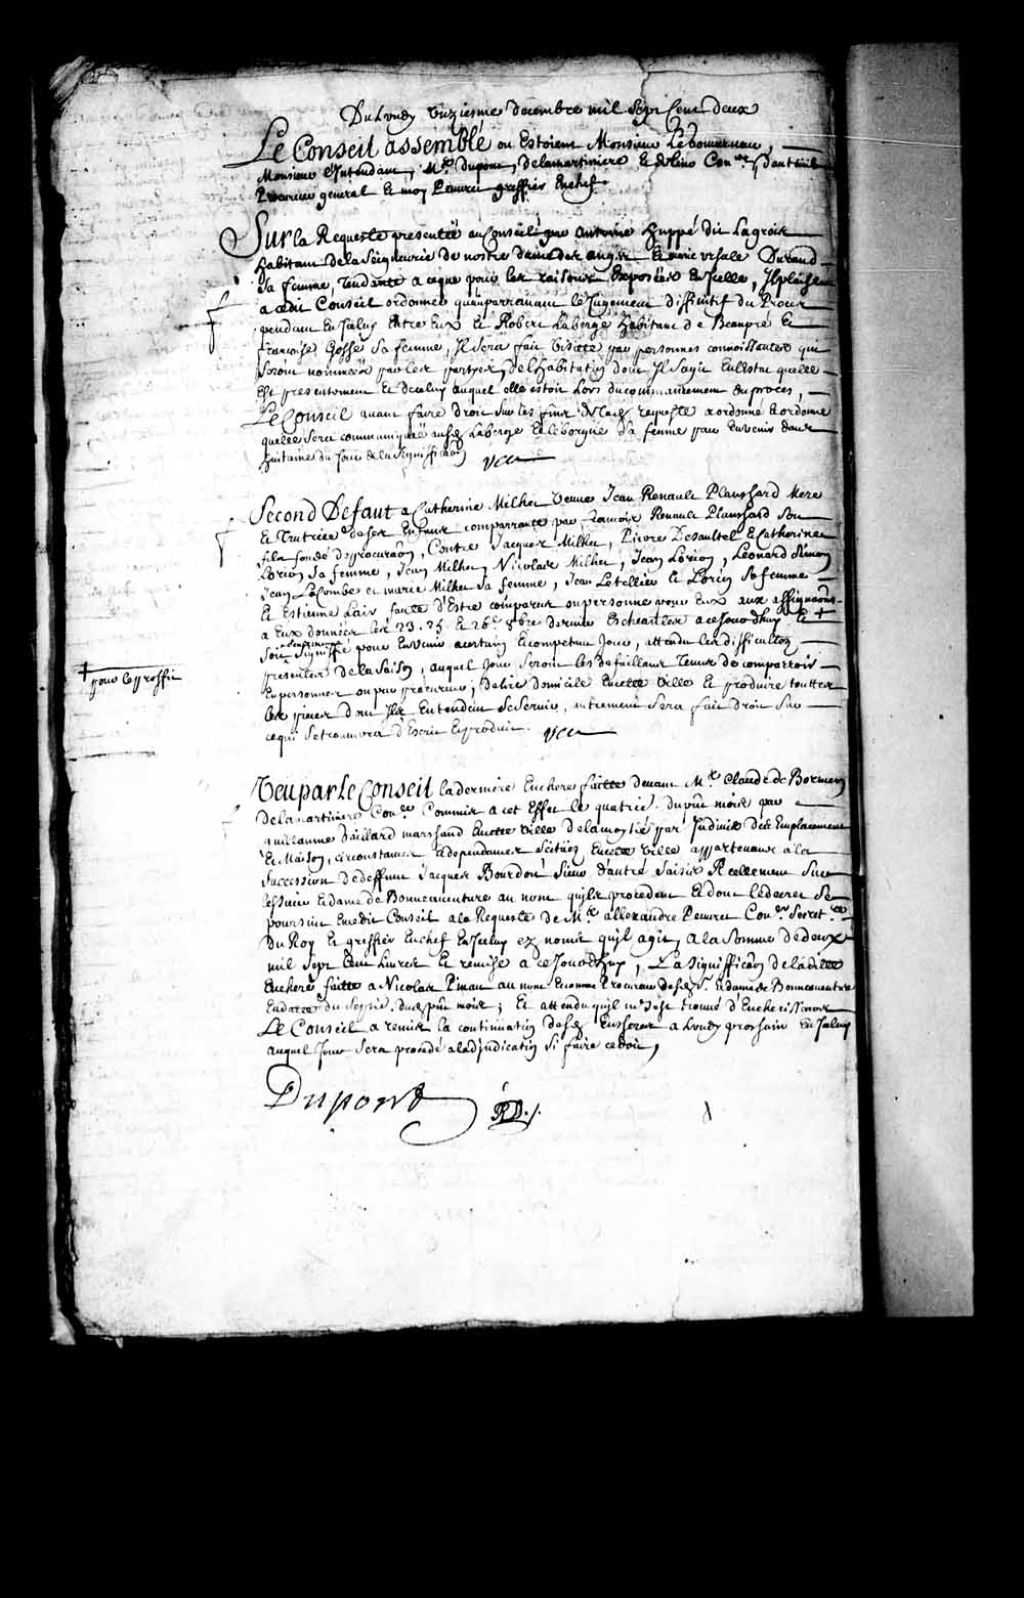 Du Lundy unziesme decembre mil sept Cent deux
Le Conseil assemblé ou Estoient Monsieur Le Gouverneur,
Monsieur L'Intendant, Mes Dupont, Delamartiniere Con.ers
Procureur general Et moy greffier Enchef
Sur la Requeste presentéé au Conseil par Antoine huppé dit Lagroix
habitant de la Seigneurie de nostre dame des anges Et ursule Durand
Sa femme, Tendante a ceque pour les raisons Exposées En Icelle, Il plaise
a cedit Conseil ordonner qu'auparavant le Jugement diffinitif du Proces
pendant En Iceluy Entre Eux Et Robert Laberge habitant de Beaupré Et
francoise Gosse Sa femme, Il Sera fait visitte par personnes connoissantes qui
Seront nommeés par les partyes, de L'habitation dont Il S'agit En l'estat quelle
Est presentement Et de celuy auquel elle estoit Lors du commancement du proces,
Le Conseil avant faire droit Sur les fins de lad. requeste a ordonné Et ordonne
quelle Sera communiquéé ausd. Laberge Et Sa femme pour En venir dans
huitaine du Jour de la Signiffica͠on
Second Defaut a Catherine Milhet veuve Jean Renault Planchard Mere
Et Tutrice de ses Enfans comparante par francois Renault Planchard Son
fils fondé de procura͠on, Contre Jacques Milhet, Pierre Desaultel Et Catherine
Lorion Sa femme, Jean Milhet, Nicolas Milhet, Jean Lorion, Leonard Simon
Jean LaCombe et marie Milhet Sa femme, Jean Letellier Et Lorion Sa femme
Et Estienne Lair faute d'Estre comparus ou personne pour Eux aux assigna͠ons
a Eux donneés les 23. 25 Et 26e 8bre dernier Escheantes a ceJourd'huy Et +
Soit Signiffié pour En venir a certain Et competant Jour, attendu les difficultez
presentes de la Saison, auquel Jour Seront les Defaillans Tenus de comparoir
En personnes ou par procureur, d'elire domicile En cette ville Et produire touttes
les pieces dont Ils Entendent Se Servir, autrement Sera fait droit Sur
ce qui Se trouvera d'Escrit Et produit.
+ pour le proffit
Veu par Le Conseil la derniere Enchere faitte devant Me. Claude de Bermen
Delamartiniere Con.er Commis a cet Effet le quatrie. du pñt mois par
guillaume Gaillard marchand En cette ville De la moytié par Indivis des Emplacement
Et Maison, circonstances Et dependances Scituez En cette ville appartenans a la
Succession de deffunt Jacques Bourdon Sieur d'autré Saisis Reellement Sur
Et dame de Bonneaventure au nom quils procedent Et dont le decret Se
poursuit En cedit Conseil a la Requeste de Me. allexandre Peuvret Con.er Secret.re
Du Roy Et greffier Enchef En Iceluy ez noms quil agit, a la Somme de deux
mil Sept Cent Livres Et remise a ce Jourd'huy, La Signiffica͠on de ladite
Enchere faitte a Nicolas Pinau au nom Et comme Procureur desd. Sr. Et dame de Bonneaventure
En datte du Septie. dud. pñt mois; Et attendu quil ne S'est trouvé d'Encherisseurs
Le Conseil a remis la continuation desd. Encheres a Lundy prochain En Iceluy
auquel Jour Sera procedé a l'adjudication Si faire ce doit,
Dupont